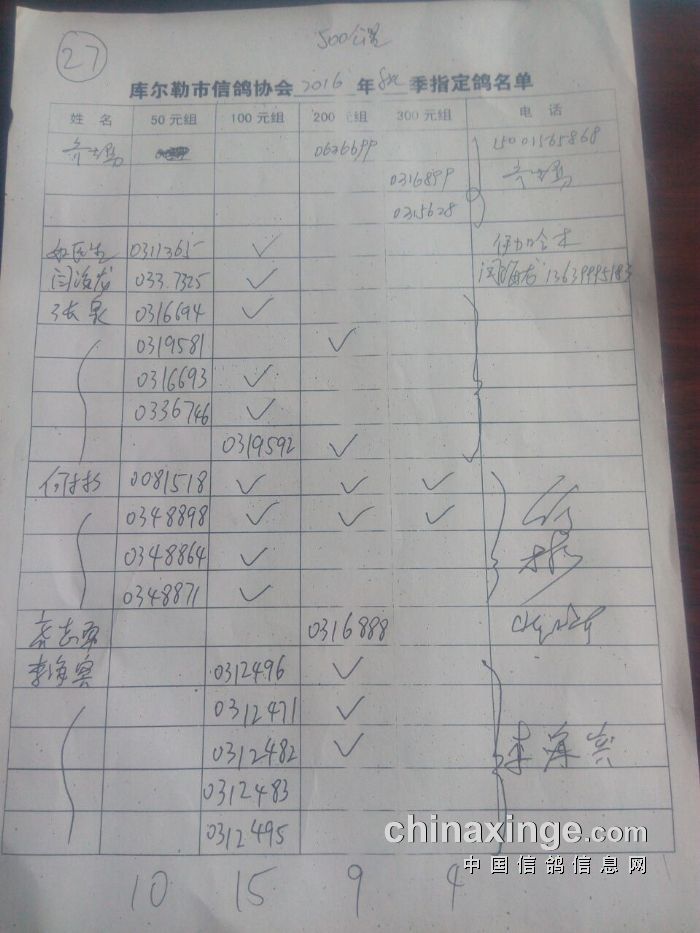 27
500公里
库尔勒市信鸽协会 2016 年 秋 季指定鸽名单
姓 名 50元组 100元组 200元组 300元组 电 话
0626699 15001565868
0316899
0315628
0311365 ✓
闫海龙 033.7325 ✓ 闫海龙
张泉 0316694 ✓
0319581 ✓
0316693 ✓
0336746 ✓
0319592 ✓
0081518 ✓ ✓ ✓
0348898 ✓ ✓ ✓
0348864 ✓
0348871 ✓
0316888
李海宾 0312496 ✓
0312471 ✓
0312482 ✓ 李海宾
0312483
0312495
10 15 9 4
chinaxinge.com
中国信鸽信息网